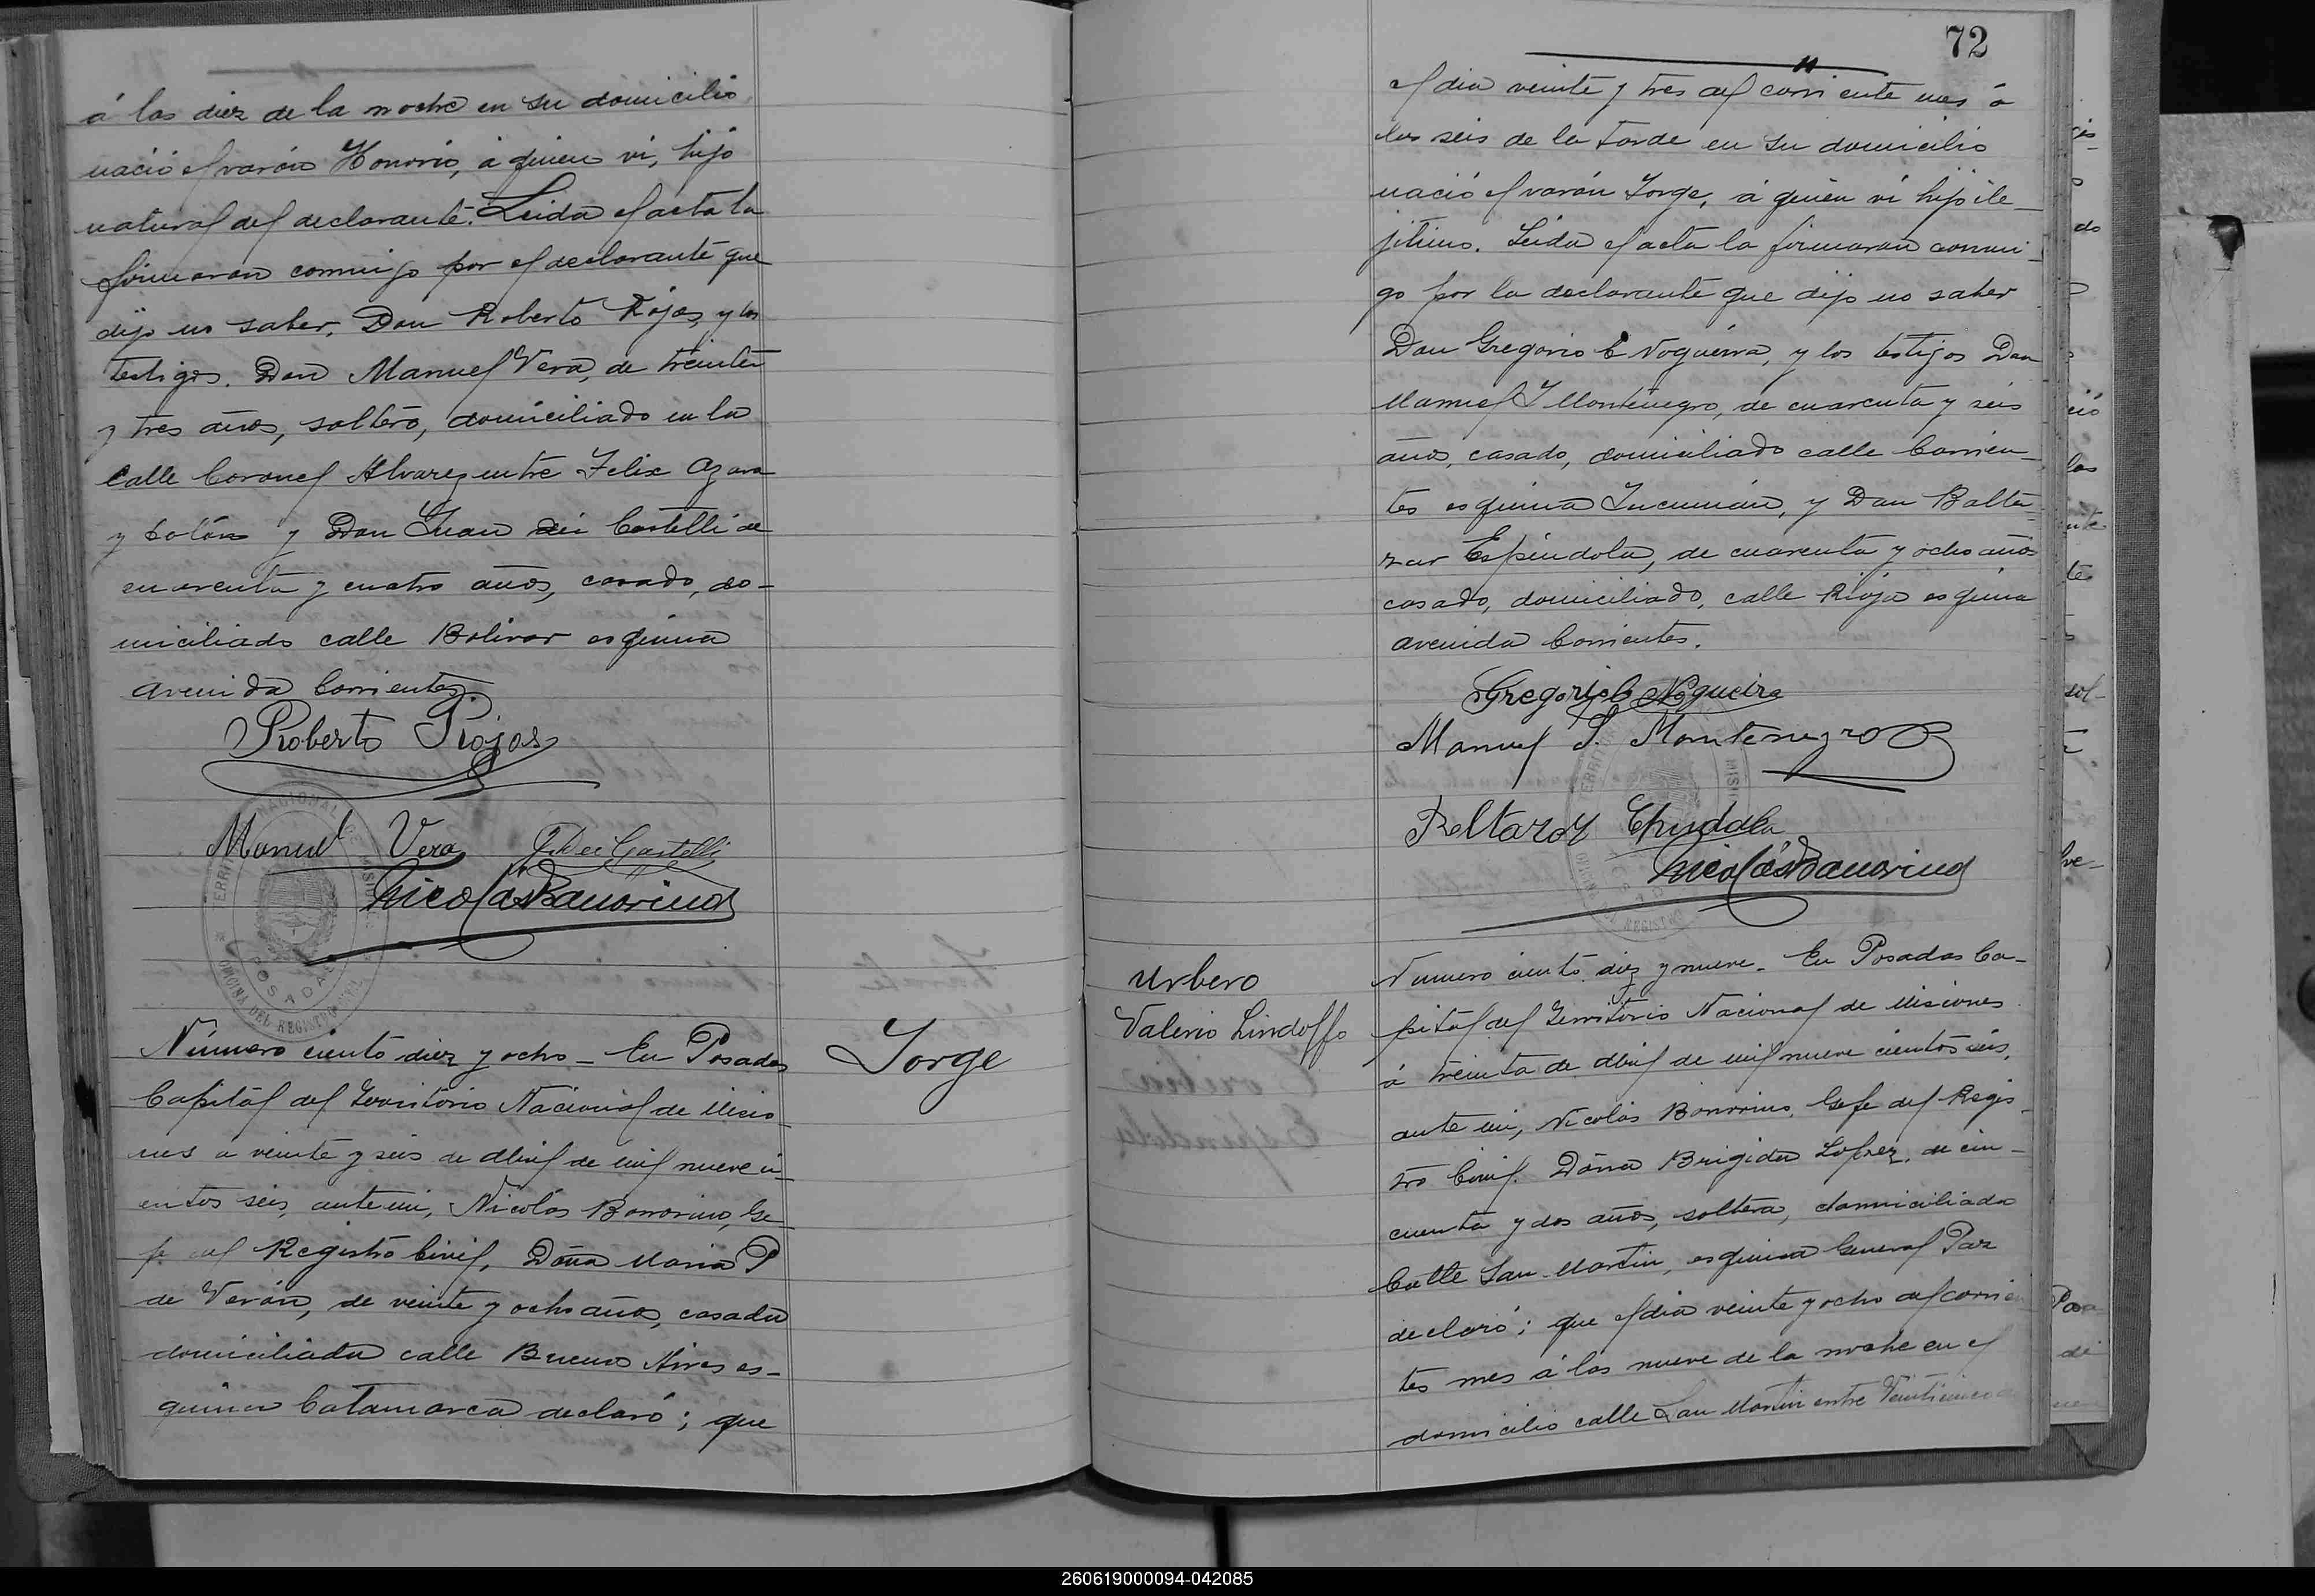 á las diez de la noche en su domicilio
nació el varón Honorio, á quien vi, hijo
natural del declarante. Leida el acta la
firmaron conmigo por el declarante que
dijo no saber, Don Roberto Rojas, y los
testigos. Don Manuel Vera, de treinta
y tres años, soltero, domiciliado en la
Calle Coronel Alvarez entre Felix Azara
y Colón y Don Juan dei Castelli de
cuarenta y cuatro años, casado, do-
miciliado calle Bolivar esquina
avenida Corrientes.
Roberto Rojas
Manuel Vera J. dei Castelli
Nicolás Bonorino
NACIONAL DE MISIONES
POSADAS
OFICINA DEL REGISTRO CIVIL
Jorge
Número ciento diez y ocho - En Posadas
Capital del Territorio Nacional de Misio
nes a veinte y seis de Abril de mil nueve ci-
entos seis, ante mi, Nicolás Bonorino, Ge
fe del Registro Civil, Doña Maria P
de Verón, de veinte y ocho años, casada
domiciliada calle Buenos Aires es-
quina Catamarca declaró; que
72
el dia veinte y tres del corriente mes á
las seis de la tarde en su domicilio
nació el varón Jorge, á quien vi hijo ile-
jitimo. Leida el acta la firmaron conmi-
go por la declarante que dijo no saber
Don Gregorio C Noguera, y los testigos Don
Manuel S Montenegro, de cuarenta y seis
años, casado, domiciliado calle Corrien-
tes esquina Tucumán, y Don Balta
zar Espindola, de cuarenta y ocho años
casado, domiciliado, calle Rioja esquina
avenida Corrientes.
Gregorio C Nogueira
Manuel S. Montenegro
Baltazar Espindola
Nicolás Bonorino
DEL REGISTRO
Urbero
Valerio Lindolfo
Numero ciento diez y nueve. En Posadas Ca-
pital del Territorio Nacional de Misiones
á treinta de Abril de mil nueve cientos seis,
ante mi, Nicolás Bonorino, Gefe del Regis-
tro Civil. Doña Brigida Lopez, de cin-
cuenta y dos años, soltera, domiciliada
Calle San Martin, esquina General Paz
declaró; que el dia veinte y ocho del corrien
tes mes á las nueve de la noche en el
domicilio calle San Martin entre Veinticinco de
260619000094-042085